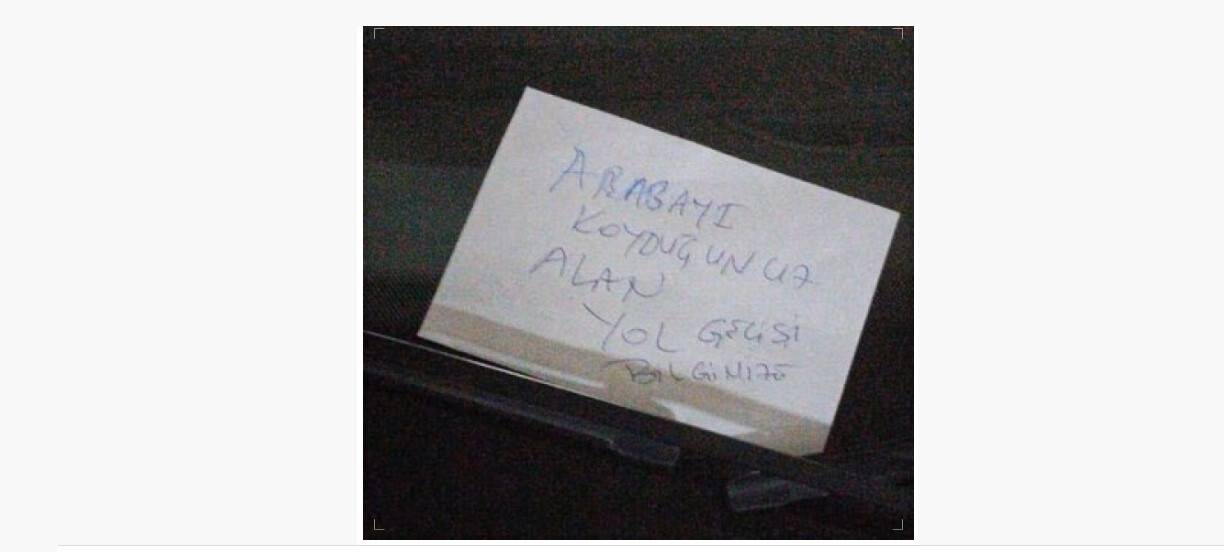 ARABAYI
KOYDUĞUNUZ
ALAN
YOL GEÇİŞİ
BİLGİNİZE